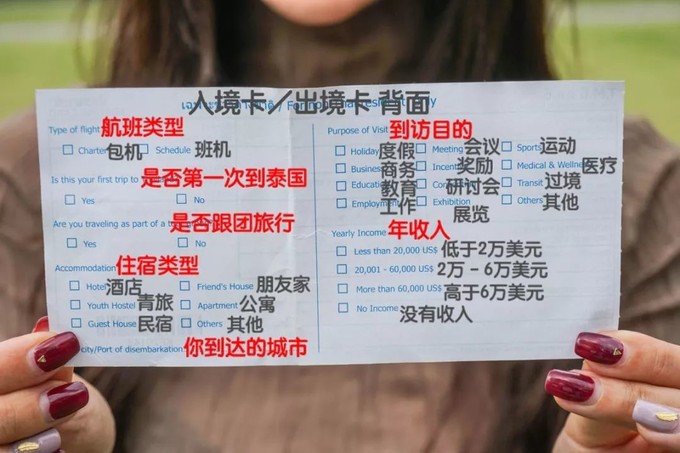 入境卡／出境卡 背面
Type of flight 航班类型
Charter 包机 Schedule 班机
Is this your first trip to 是否第一次到泰国
Yes No
Are you traveling as part of a 是否跟团旅行
Yes No
Accommodation 住宿类型
Hotel 酒店 Friend's House 朋友家
Youth Hostel 青旅 Apartment 公寓
Guest House 民宿 Others 其他
city/Port of disembarkation 你到达的城市
Purpose of Visit 到访目的
Holiday 度假 Meeting 会议 Sports 运动
Business 商务 Incentive 奖励 Medical & Wellness 医疗
Education 教育 研讨会 Transit 过境
Employment 工作 Exhibition 展览 Others 其他
Yearly Income 年收入
Less than 20,000 US$ 低于2万美元
20,001 - 60,000 US$ 2万－6万美元
More than 60,000 US$ 高于6万美元
No Income 没有收入